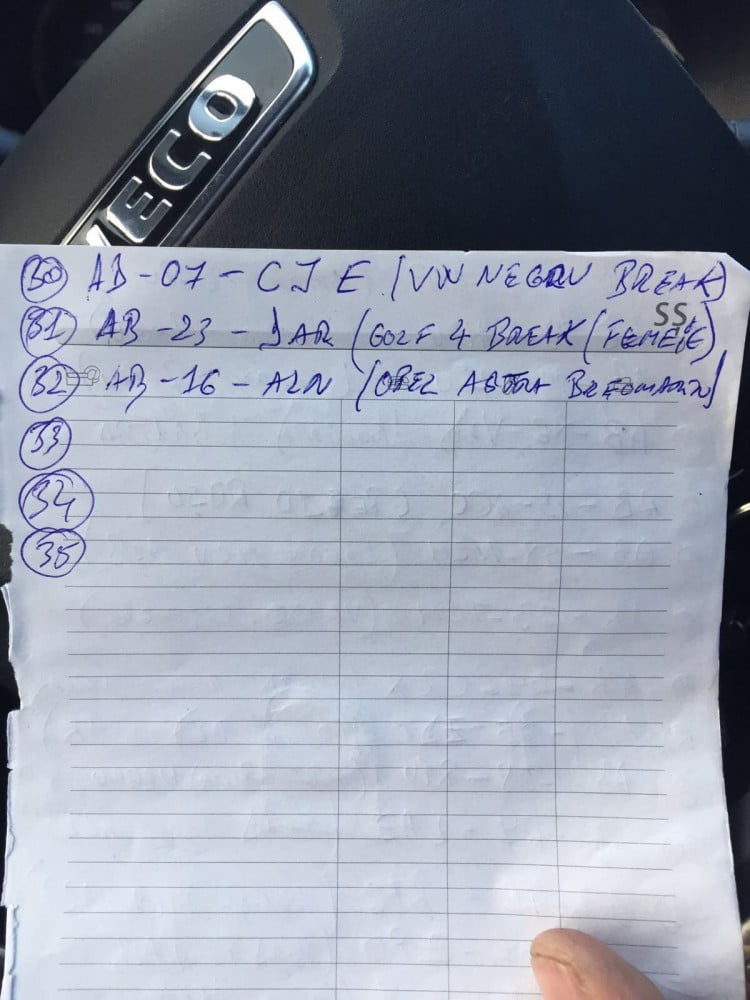 IVECO
30 AB-07-CJE (VW NEGRU BREAK)
SS
31 AB-23-JAR (GOLF 4 BREAK (FEMEIE)
32 AB-16-ALN (OPEL ASTRA
33
34
35